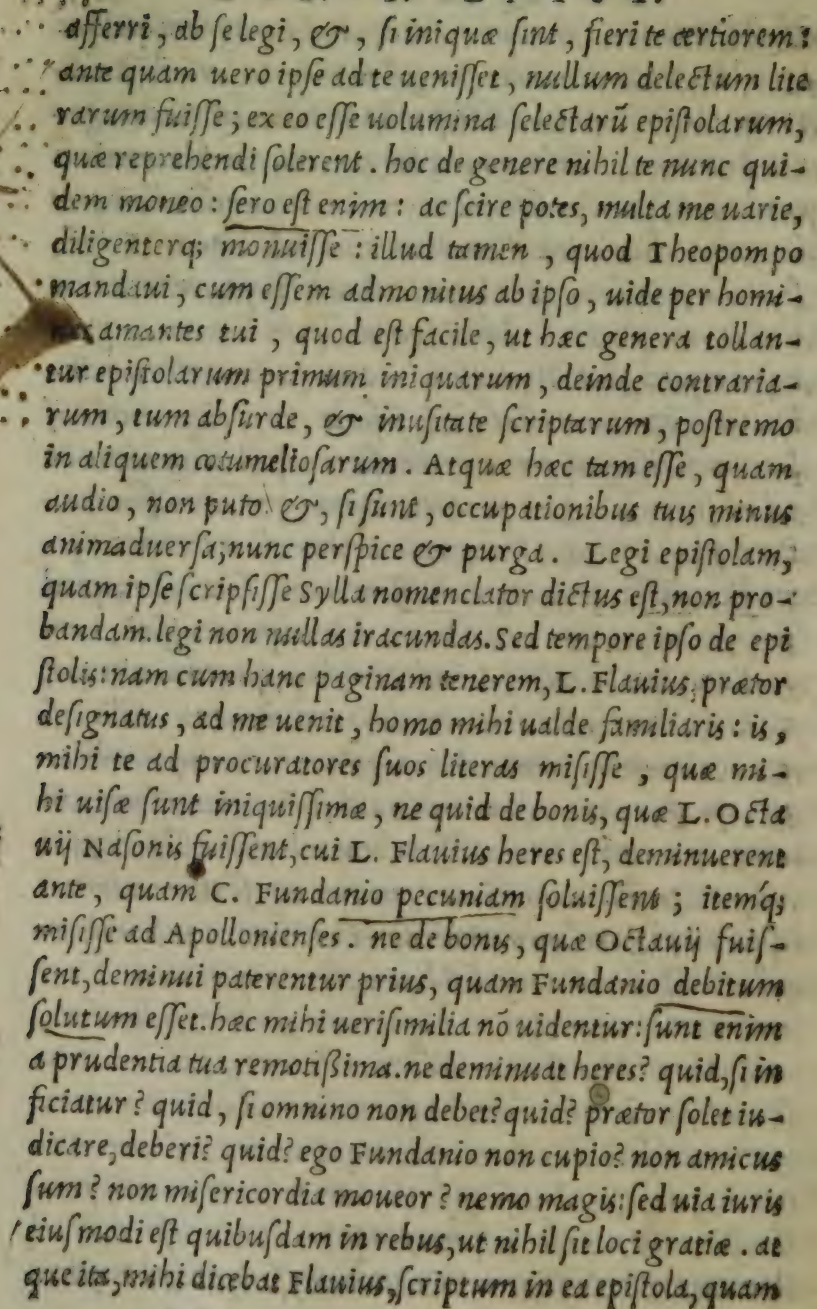 afferri, ab se legi, &, si iniquæ sint, fieri te certiorem:
ante quam uero ipse ad te uenisset, nullum delectum lite
rarum fuisse; ex eo esse uolumina selectarū epistolarum,
quæ reprehendi solerent. hoc de genere nihil te nunc qui-
dem moneo: sero est enim: ac scire potes, multa me uarie,
diligenterq; monuisse: illud tamen, quod Theopompo
mandaui, cum essem admonitus ab ipso, uide per homi-
amantes tui, quod est facile, ut hæc genera tollan-
tur epistolarum primum iniquarum, deinde contraria-
rum, tum absurde, & inusitate scriptarum, postremo
in aliquem cōtumeliosarum. Atquæ hæc tam esse, quam
audio, non puto &, si sunt, occupationibus tuis minus
animaduersa; nunc perspice & purga. Legi epistolam,
quam ipse scripsisse Sylla nomenclator dictus est, non pro-
bandam. legi non nullas iracundas. Sed tempore ipso de epi
stolis: nam cum hanc paginam tenerem, L. Flauius, prætor
designatus, ad me uenit, homo mihi ualde familiaris: is,
mihi te ad procuratores suos literas misisse, quæ mi-
hi uisæ sunt iniquissimæ, ne quid de bonis, quæ L. Octa
uij Nasonis fuissent, cui L. Flauius heres est, deminuerent
ante, quam C. Fundanio pecuniam soluissent; itemq́;
misisse ad Apollonienses. ne de bonis, quæ Octauij fuis-
sent, deminui paterentur prius, quam Fundanio debitum
solutum esset. hæc mihi uerisimilia nō uidentur: sunt enim
a prudentia tua remotißima. ne deminuat heres? quid, si in
ficiatur? quid, si omnino non debet? quid? prætor solet iu-
dicare, deberi? quid? ego Fundanio non cupio? non amicus
sum? non misericordia moueor? nemo magis: sed uia iuris
eiusmodi est quibusdam in rebus, ut nihil sit loci gratiæ. at
que ita, mihi dicebat Flauius, scriptum in ea epistola, quam